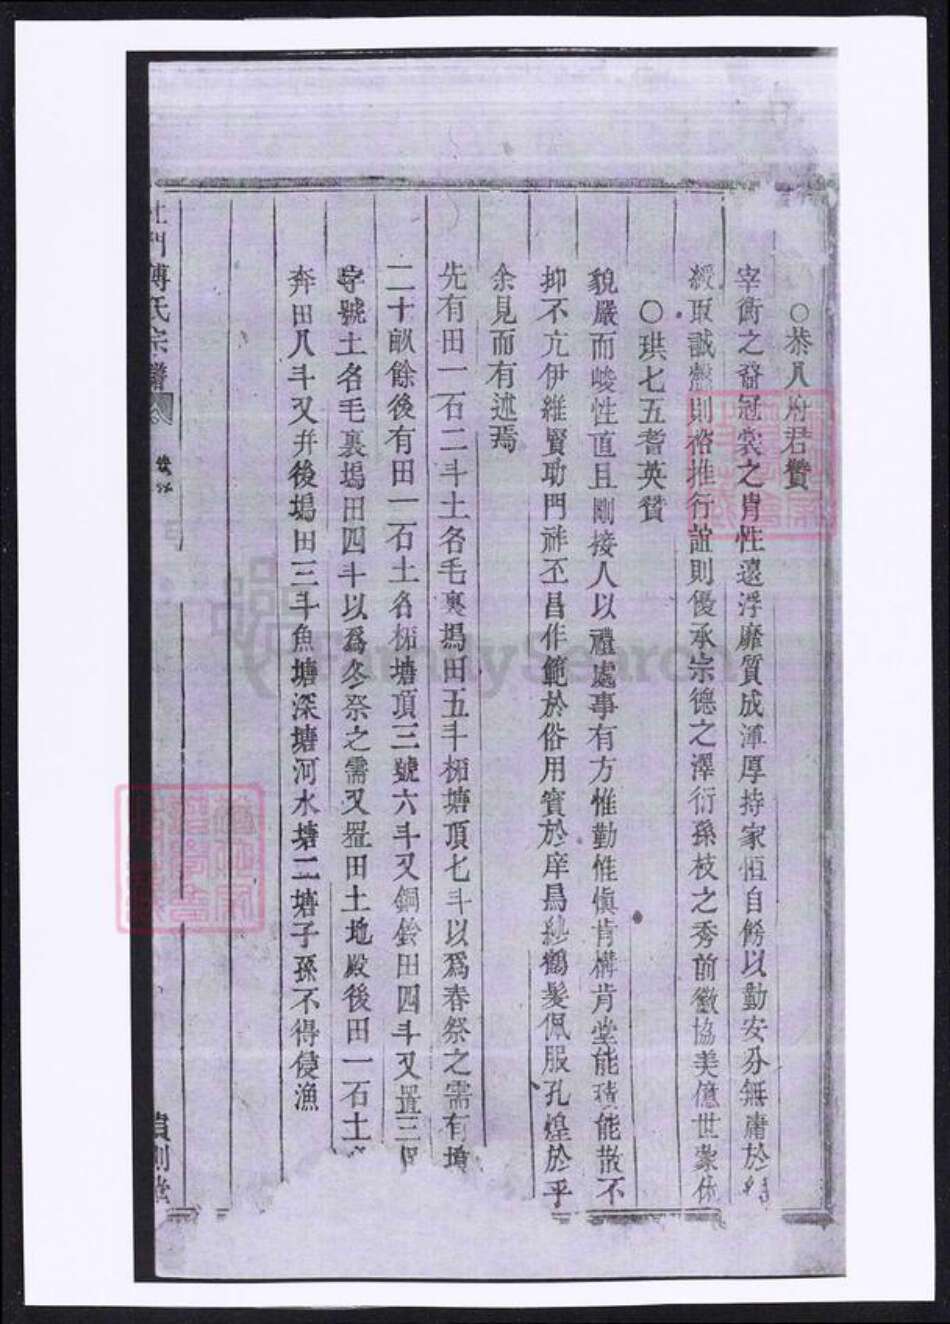 ○恭八府君贊
宰衡之裔冠裳之胄性遠浮靡質成渾厚持家恒自餝以勤安分無庸於
綬取誠慤則俗推行誼則優承宗德之澤衍孫枝之秀前徽協美億世蒙庥
○珙七五耆英贊
貌嚴而峻性直且剛接人以禮處事有方惟勤惟慎肯構肯堂能積能散不
抑不亢伊維賢助門祚丕昌作範於俗用賓於庠烏紗鶴髮佩服孔煌於乎
余見而有述焉
先有田一石二斗土名毛裏塢田五斗栁塘頂七斗以爲春祭之需有墳
二十畝餘後有田一石土名栁塘頂三號六斗又銅鈴田四斗又置三
字號土名毛裏塢田四斗以爲冬祭之需又置田土地殿後田一石土
奔田八斗又幷後塢田三斗魚塘深塘河水塘二塘子孫不得侵漁
杜門傅氏宗譜
貽則堂
FamilySearch